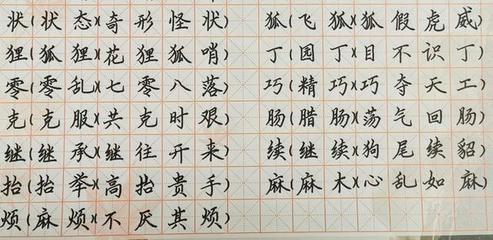 状(状态)(奇形怪状)
狸(狐狸)(花狸狐哨)
零(零乱)(七零八落)
克(克服)(共克时艰)
继(继承)(继往开来)
抬(抬举)(高抬贵手)
烦(麻烦)(不厌其烦)
狐(飞狐)(狐假虎威)
丁(园丁)(目不识丁)
巧(精巧)(巧夺天工)
肠(腊肠)(荡气回肠)
续(继续)(狗尾续貂)
麻(麻木)(心乱如麻)